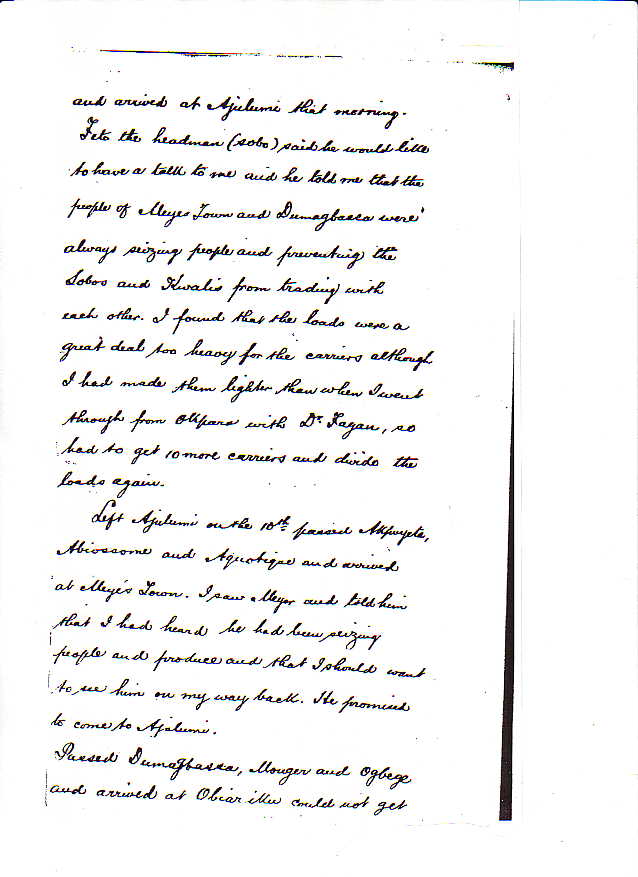 and arrived at Ajulumi that morning.
Feto the headman (Sobo) said he would like
to have a talk to me and he told me that the
people of Meyes Town and Dumagbassa were
always seizing people and preventing the
Sobos and Kwalis from trading with
each other. I found that the loads were a
great deal too heavy for the carriers although
I had made them lighter than when I went
through from Okpara with Dr. Fagan, so
had to get 10 more carriers and divide the
loads again.
Left Ajulumi on the 10th passed
Abiossome and Aquotigue and arrived
at Meye's Town. I saw Meyor and told him
that I had heard he had been seizing
people and produce and that I should want
to see him on my way back. He promised
to come to Ajalumi.
Passed Dumagbassa, Mouger and Ogbege
and arrived at Obiar could not get